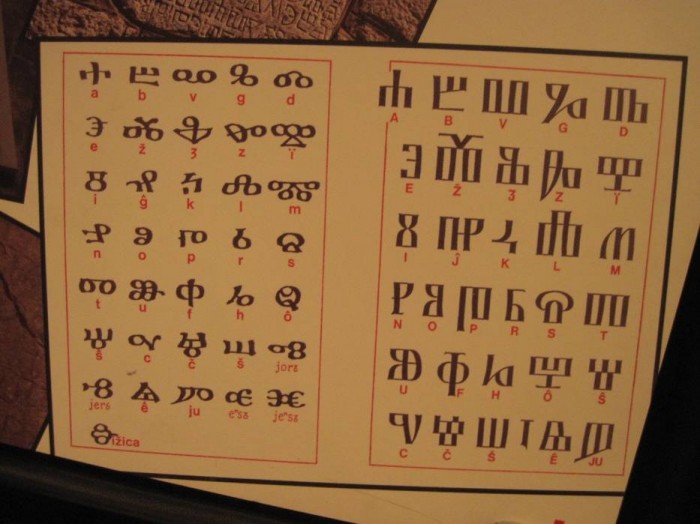 ⰰ ⰱ ⰲ ⰳ ⰴ
a b v g d
ⰵ ⰶ ⰷ ⰸ ⰹ
e ž ʒ z ï
ⰻ ⰼ ⰽ ⰾ ⰿ
i ĝ k l m
ⱀ ⱁ ⱂ ⱃ ⱄ
n o p r s
ⱅ ⱆ ⱇ ⱈ ⱉ
t u f h ô
ⱋ ⱌ ⱍ ⱎ ⱏ
ŝ c č š jorъ
ⱐ ⱑ ⱓ ⱔ ⱗ
jerь ê ju
ⱛ ižica
ⰰ ⰱ ⰲ ⰳ ⰴ
A B V G D
ⰵ ⰶ ⰷ ⰸ ⰹ
E Ž Ʒ Z Ï
ⰻ ⰼ ⰽ ⰾ ⰿ
I Ĵ K L M
ⱀ ⱁ ⱂ ⱃ ⱄ ⱅ
N O P R S T
ⱆ ⱇ ⱈ ⱉ ⱋ
U F H Ô Ŝ
ⱌ ⱍ ⱎ ⱑ ⱓ
C Č Š Ê JU